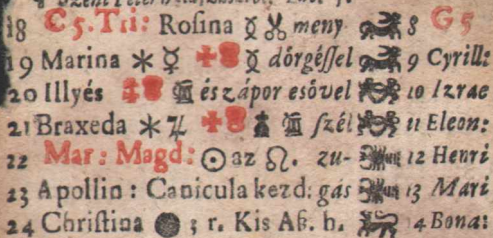 18 C 5. Tri: Rosina ☿ meny 8 G 5
19 Marina ✶ ☿ ☿ dörgéssel 9 Cyrill:
20 Illyés és zápor esövel 10 Izrae
21 Braxeda ✶ ♃ szél 11 Eleon:
22 Mar: Magd: ☉ az ♌. zu- 12 Henri
23 Apollin: Canicula kezd: gás 13 Mari
24 Christina ● 3 r. Kis Aß. h. 14 Bona: